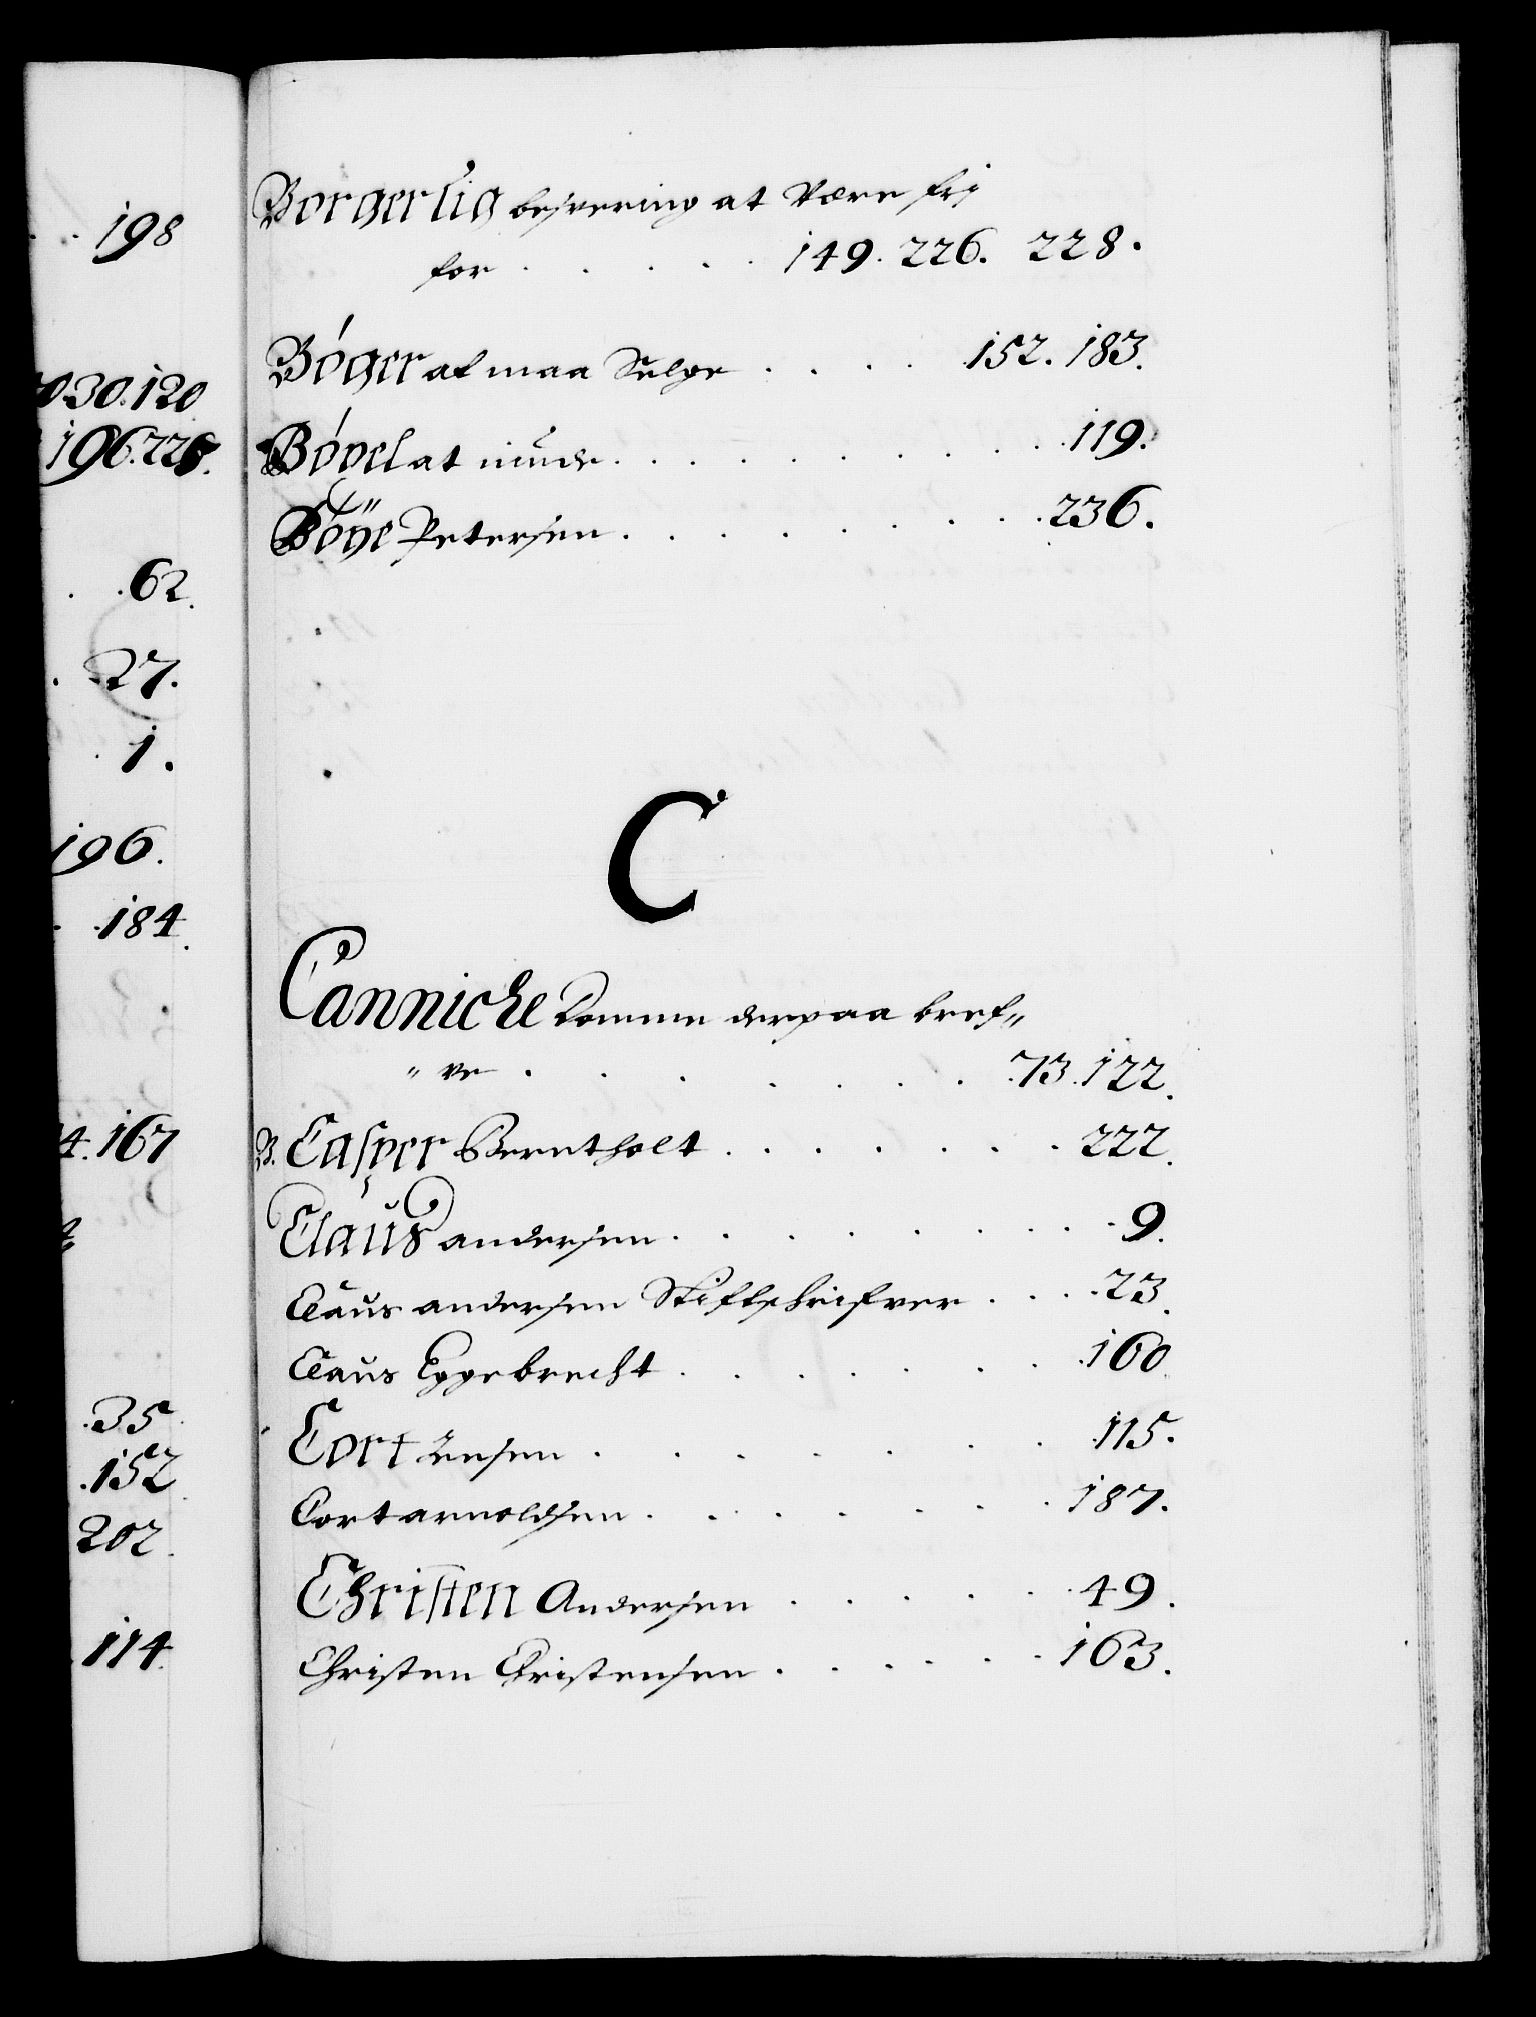 198
030.120
196.226.
.62.
.27.
1.
196.
.184.
4.167
.35.
.152
202.
114.
Borgerlig besvering at være fri
for . . . . . 149. 226. 228.
Böger at maa Selge . . . . 152. 183.
Bövel at . . . . . . . . 119.
Böÿe Petersen . . . . . . . . 236.
C
Cannicke Domme derpaa bref„
„ve . . . . . . . 73. 122.
B. Casper Berntholt . . . . . . 222.
Claus andersen . . . . . . . . 9.
Claus andersen Stiftschrifver . . . 23.
Claus Eggebrecht . . . . . . . 160.
Cort Ensen . . . . . . . 115.
Cort arnoldsen . . . . . . . 187.
Christen Andersen . . . . . 49.
Christen Christensen . . . . . . 163.